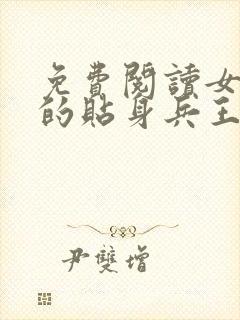 免費閱讀女
的貼身兵王
尹雙增